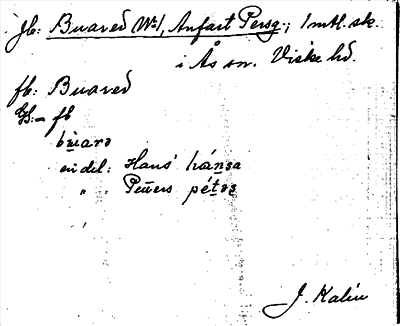 jb: Buared No 1, Anfast Persg.; 1 mtl. sk.
i Ås sn. Viske hd.
fb: Buared
G:- fb
buarə
en del: Hans' hánsa
" " Petters pétəs
J. Kalén